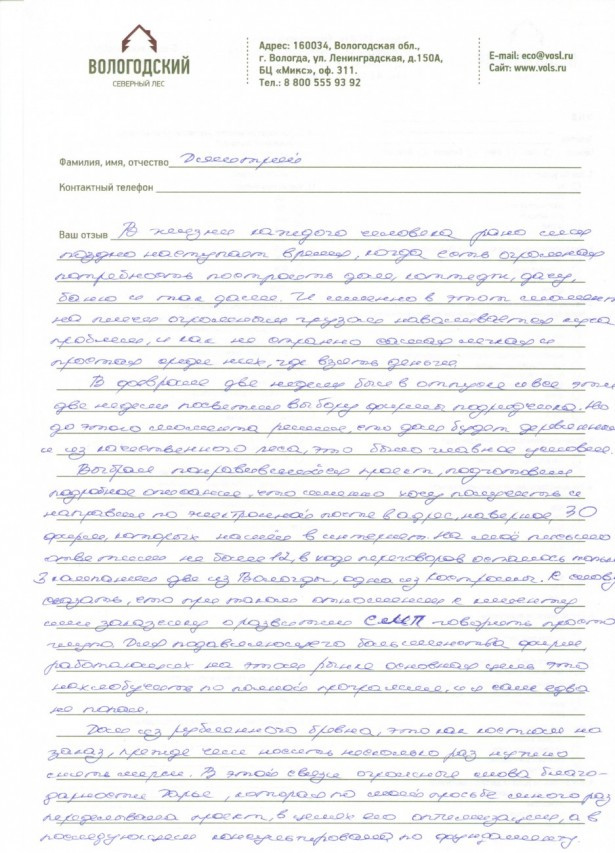 ВОЛОГОДСКИЙ
СЕВЕРНЫЙ ЛЕС
Адрес: 160034, Вологодская обл.,
г. Вологда, ул. Ленинградская, д.150А,
БЦ «Микс», оф. 311.
Тел.: 8 800 555 93 92
E-mail: eco@vosl.ru
Сайт: www.vols.ru
Фамилия, имя, отчество Дмитрий
Контактный телефон
Ваш отзыв В жизни каждого человека рано или
поздно наступает время, когда есть огромная
потребность построить дом, коттедж, дачу,
баню и так далее. И именно в этот момент
на плечи огромным грузом наваливается куча
проблем, и как не странно самая легкая и
простая среди них, где взять деньги.
В феврале две недели был в отпуске и все эти
две недели посветил выбору фирмы подрядчика. Но
до этого момента решил, что дом будет деревянный
и из качественного леса, это было главное условие.
Выбрал понравившийся проект, подготовил
подробное описание, что именно хочу получить и
направил по электронной почте в адрес, наверное, 30
фирм, которых нашёл в интернет. На моё письмо
ответили не более 12, в ходе переговоров осталось только
3 компании две из Вологды, одна из Костромы. К слову
сказать, что при таком отношении к клиенту
или заказчику о развитии СМП говорить просто
Для подавляющего большинства фирм,
работающих на этом рынке основная цель это
по полной программе, и я сам едва
не попал.
Дом из рубленного бревна, это как костюм на
заказ, прежде чем носить несколько раз нужно
снять мерки. В этой связи огромные слова благо-
дарности Дарье, которая по моей просьбе много раз
переделывала проект, в целях его оптимизации, а в
последующем консультировала по фундаменту.